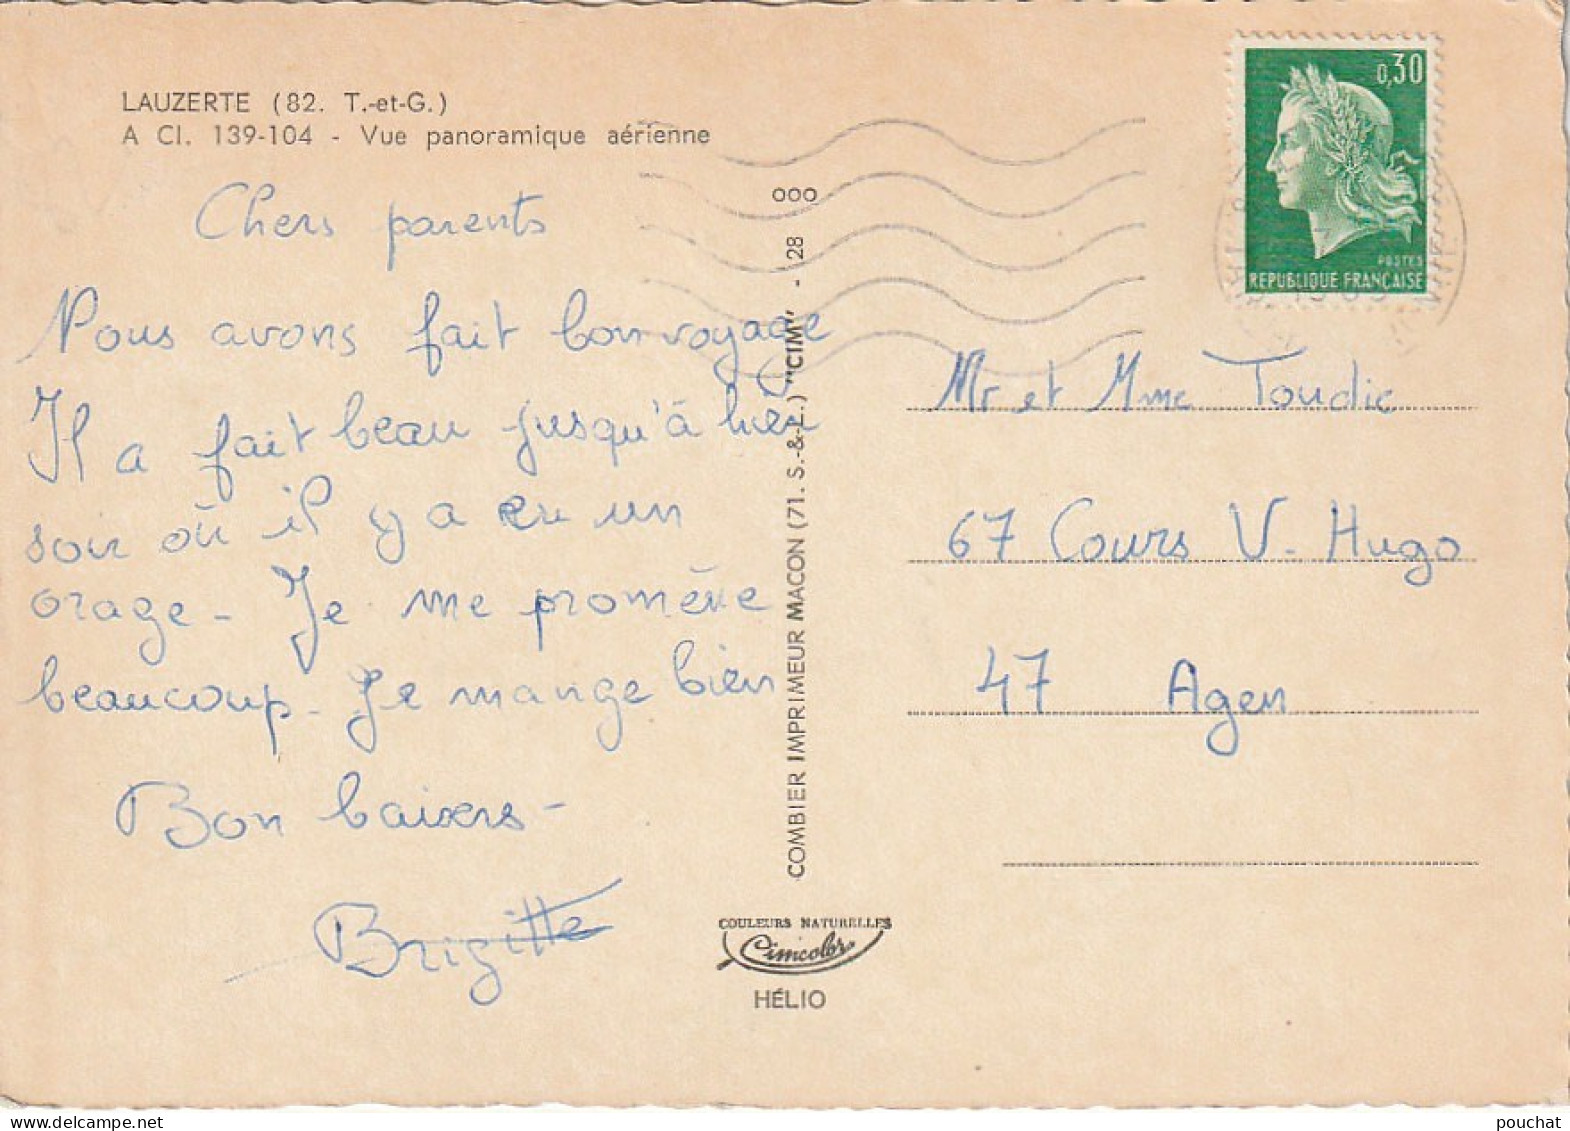 LAUZERTE (82. T.-et-G.)
A Cl. 139-104 - Vue panoramique aérienne
Chers parents
Nous avons fait bon voyage
Il a fait beau jusqu'à hier
soir où il y a eu un
orage - Je me promène
beaucoup - Je mange bien
Bon baisers -
Brigitte
COMBIER IMPRIMEUR MACON (71. S.-&-L.) "CIM" - 28 000
COULEURS NATURELLES
Cimcolor
HÉLIO
0,30
POSTES
REPUBLIQUE FRANÇAISE
Mr et Mme Toudic
67 Cours V. Hugo
47 Agen
pouchat